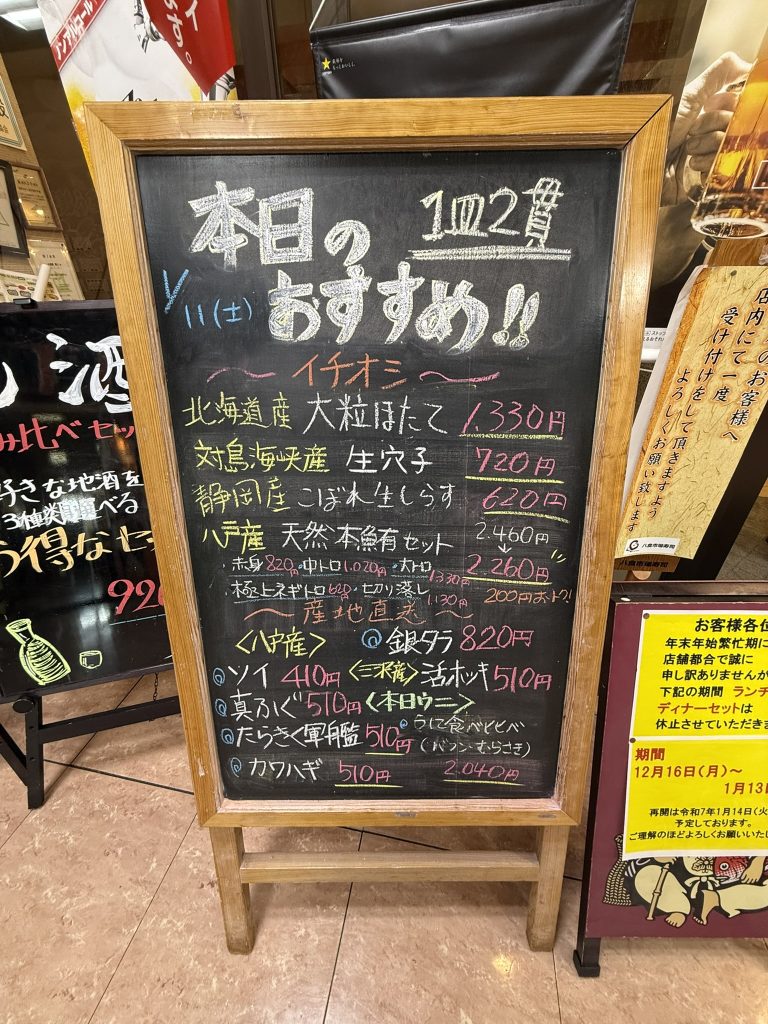 本日の
おすすめ!!
1皿2貫
1/11(土)
イチオシ
北海道産 大粒ほたて 1,330円
対島海峡産 生穴子 720円
静岡産 こぼれ生しらす 620円
八戸産 天然本鮪有セット 2.460円
↓
2.260円
・赤身820円・中トロ1.020円・大トロ1.330円
・極上ネギトロ620円・切り落し1.130円
200円おトク!
産地直送
<八戸産>
銀タラ 820円
ソイ 410円
<三沢産> 活ホッキ 510円
真ふぐ 510円
<本日ウニ>
たらきく軍艦 510円
うに食べヒヒベ
(バフン・むらさき)
2.040円
カワハギ 510円
酒
み比べセッ
好きな地酒を
3種類選べる
お得なセ
920
ノンアルコール
店内
のお客様へ
にて一度
受け付けをして頂きますよう
よろしくお願い致します
八食市場寿司
八食市場寿司
お客様各位
年末年始繁忙期に
店舗都合で誠に
申し訳ありませんが
下記の期間 ランチ
ディナーセットは
休止させていただきま
期間
12月16日(月)〜
1月13日
再開は令和7年1月14日(火
予定しております。
ご理解のほどよろしくお願いいたし